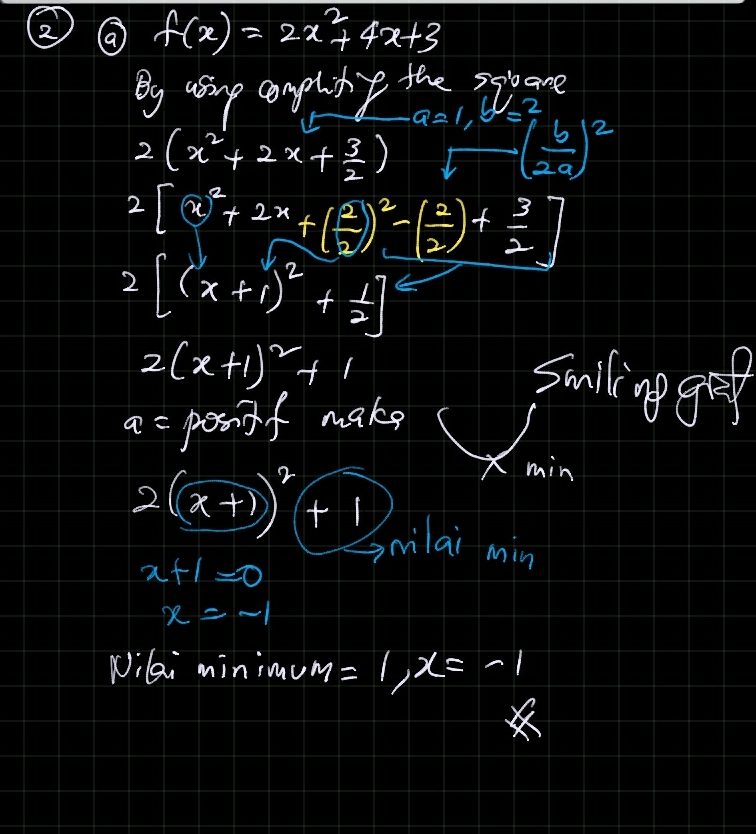 ② ⓐ f(x) = 2x² + 4x + 3
By using the square
a = 1, b = 2
2(x² + 2x + 3/2) (b/2a)²
2[x² + 2x + (2/2)² - (2/2) + 3/2]
2[(x + 1)² + 1/2]
2(x + 1)² + 1
Smiling
a = make
min
2(x + 1)² + 1
nilai min
x + 1 = 0
x = -1
Nilai minimum = 1, x = -1